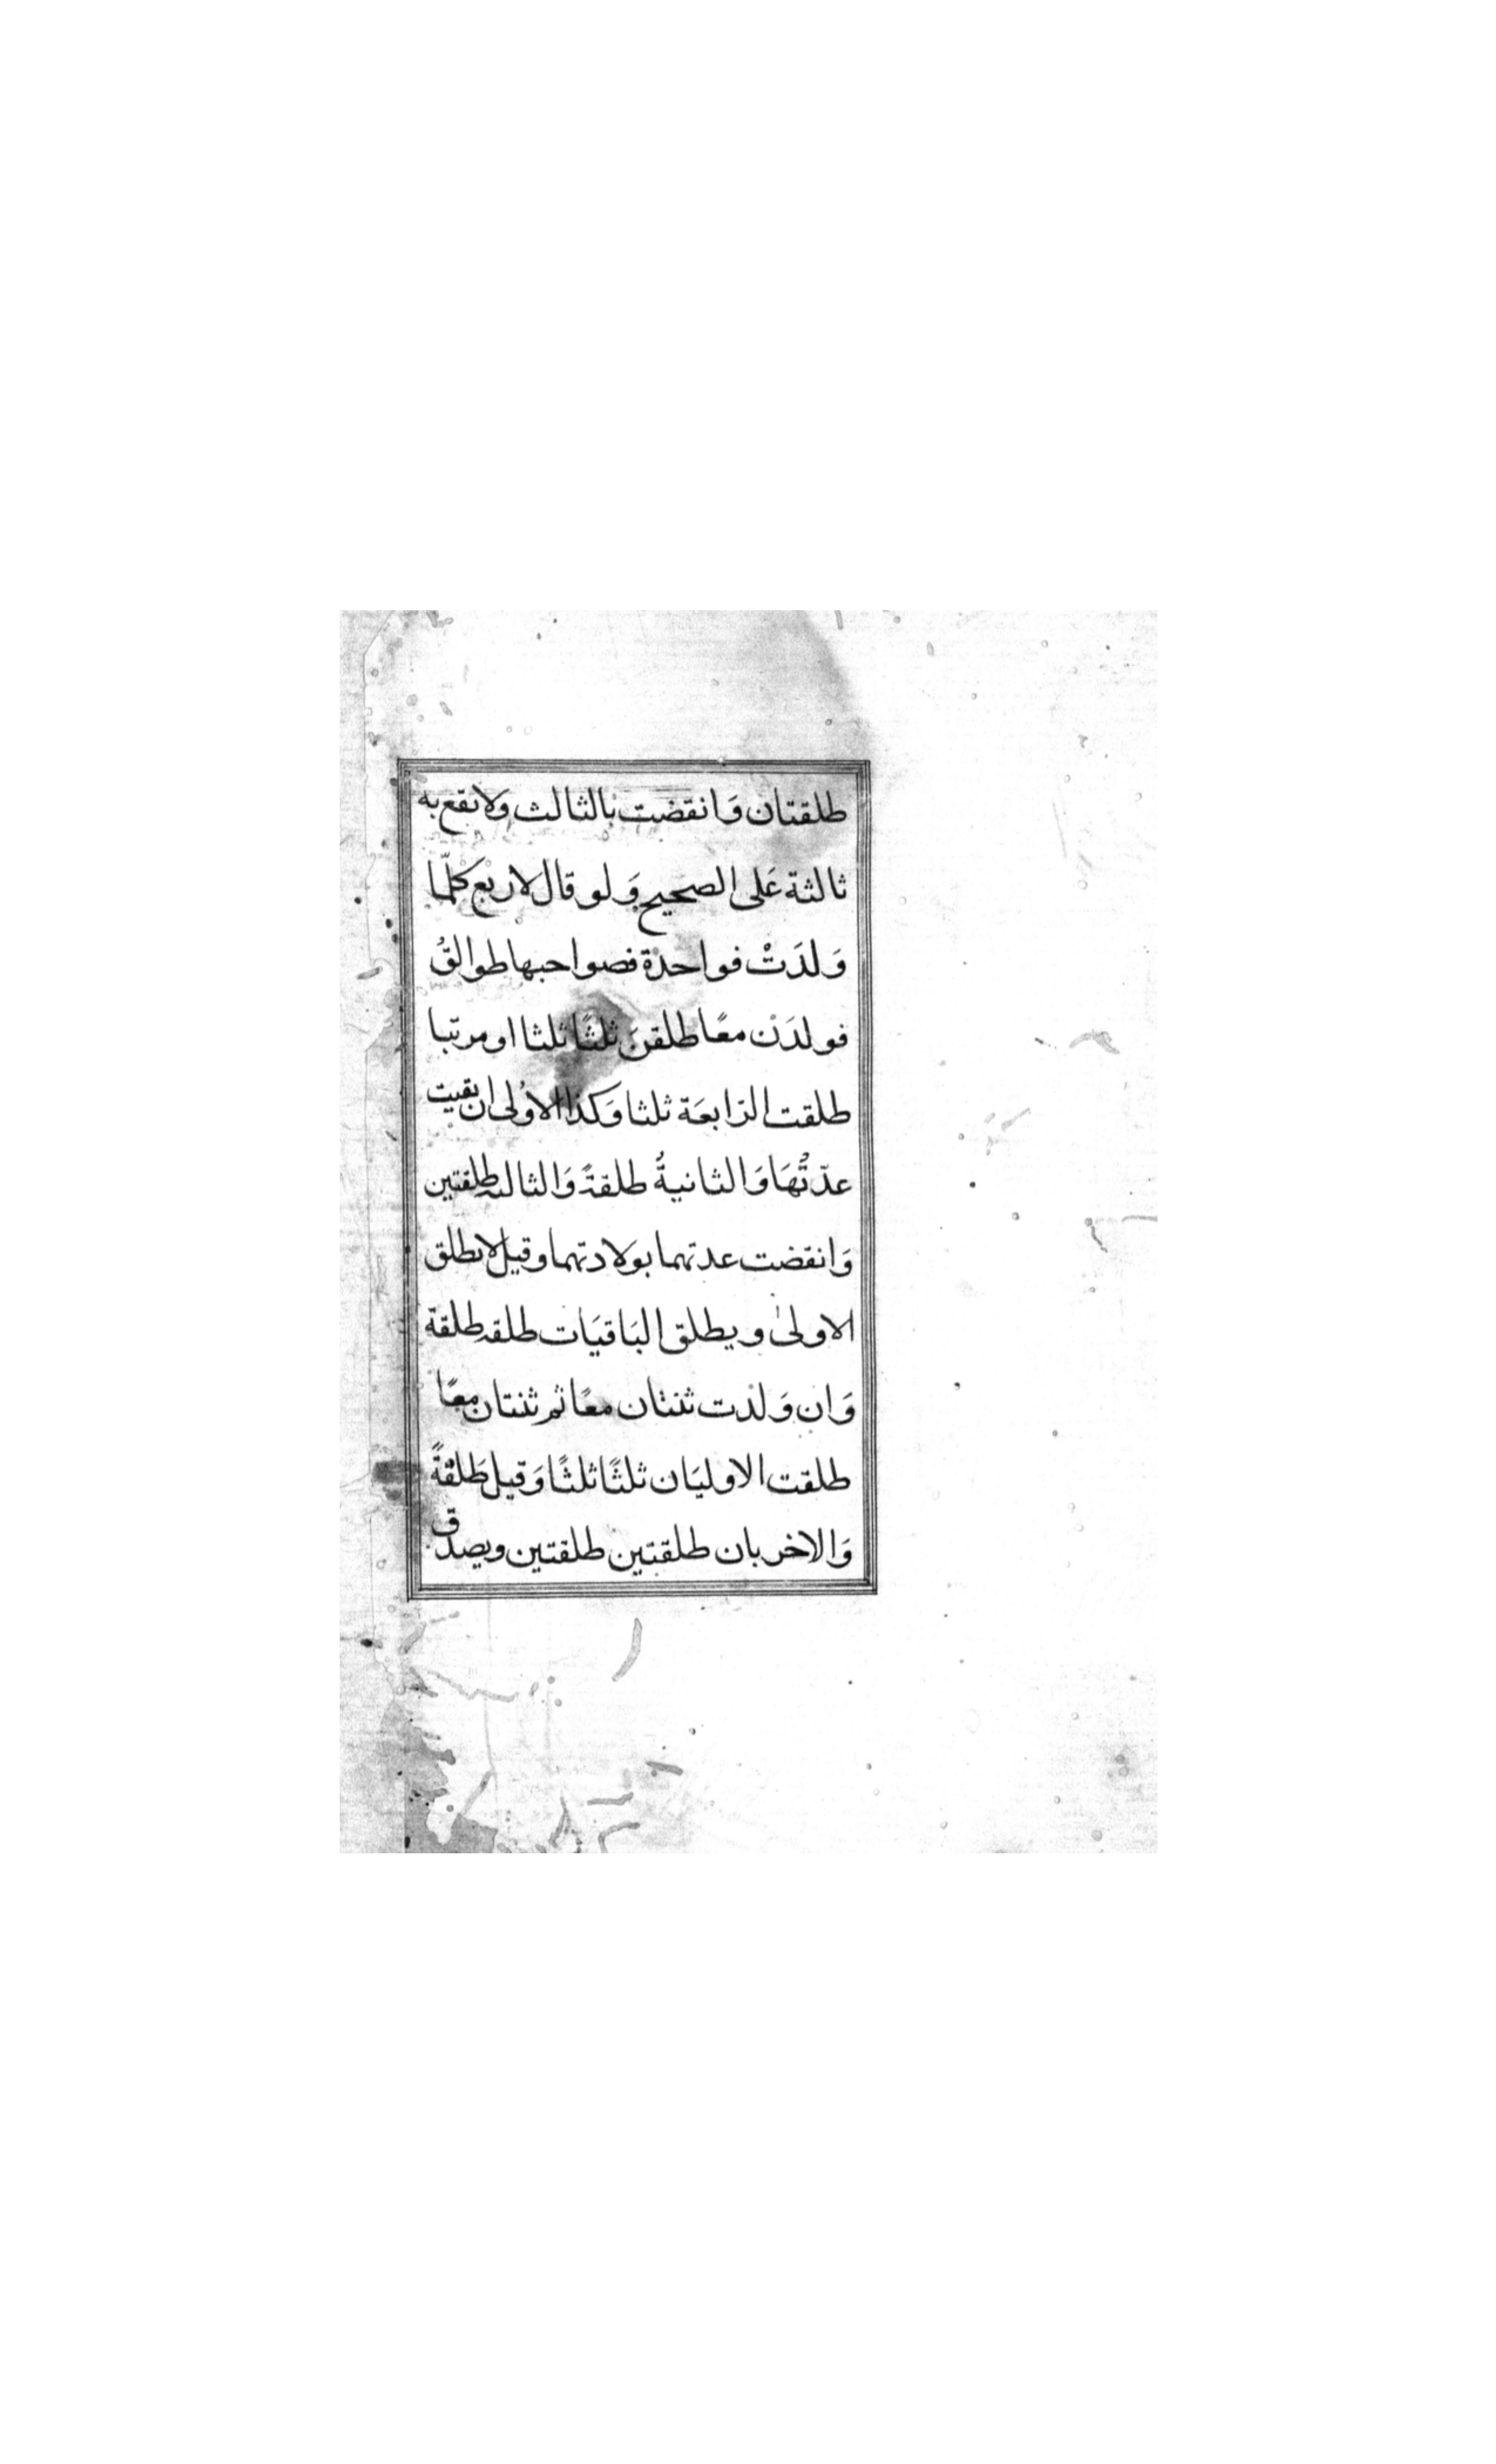 طلقتان وَانقضت بالثالث ولا تقع به
ثالثة عَلى الصحيح وَلو قال لاربع كلّما
وَلدَتْ فواحدة فصواحبها طوالقُ
فولدَن معًا طلقن ثلثًا ثلثا او مرتبا
طلقت الرّابعَة ثلثا وَكذا الاوُلى ان بقيت
عدّتُهَا وَالثانيةُ طلقةً وَالثالثه طلقتين
وَانقضت عدتهما بولادتهما وقيل لا تطلق
الاولىٰ ويطلق البَاقيَات طلقه طلقة
وَان وَلدت ثنتان معًا ثم ثنتان معًا
طلقت الاوليَان ثلثًا ثلثًا وَقيل طَلقةً
وَالاخريان طلقتين طلقتين ويصدق